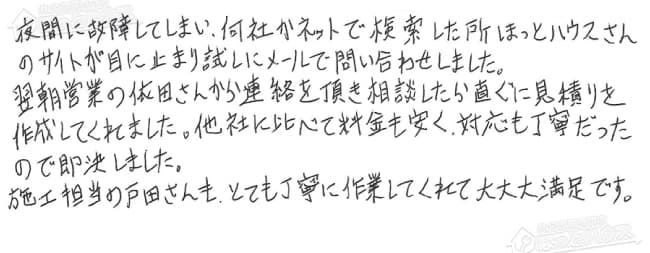 夜間に故障してしまい、何社かネットで検索した所ほっとハウスさん
のサイトが目に止まり試しにメールで問い合わせしました。
翌朝営業の依田さんから連絡を頂き相談したら直ぐに見積りを
作成してくれました。他社に比べて料金も安く、対応も丁寧だった
ので即決しました。
施工担当の戸田さんも、とても丁寧に作業してくれて大大大満足です。